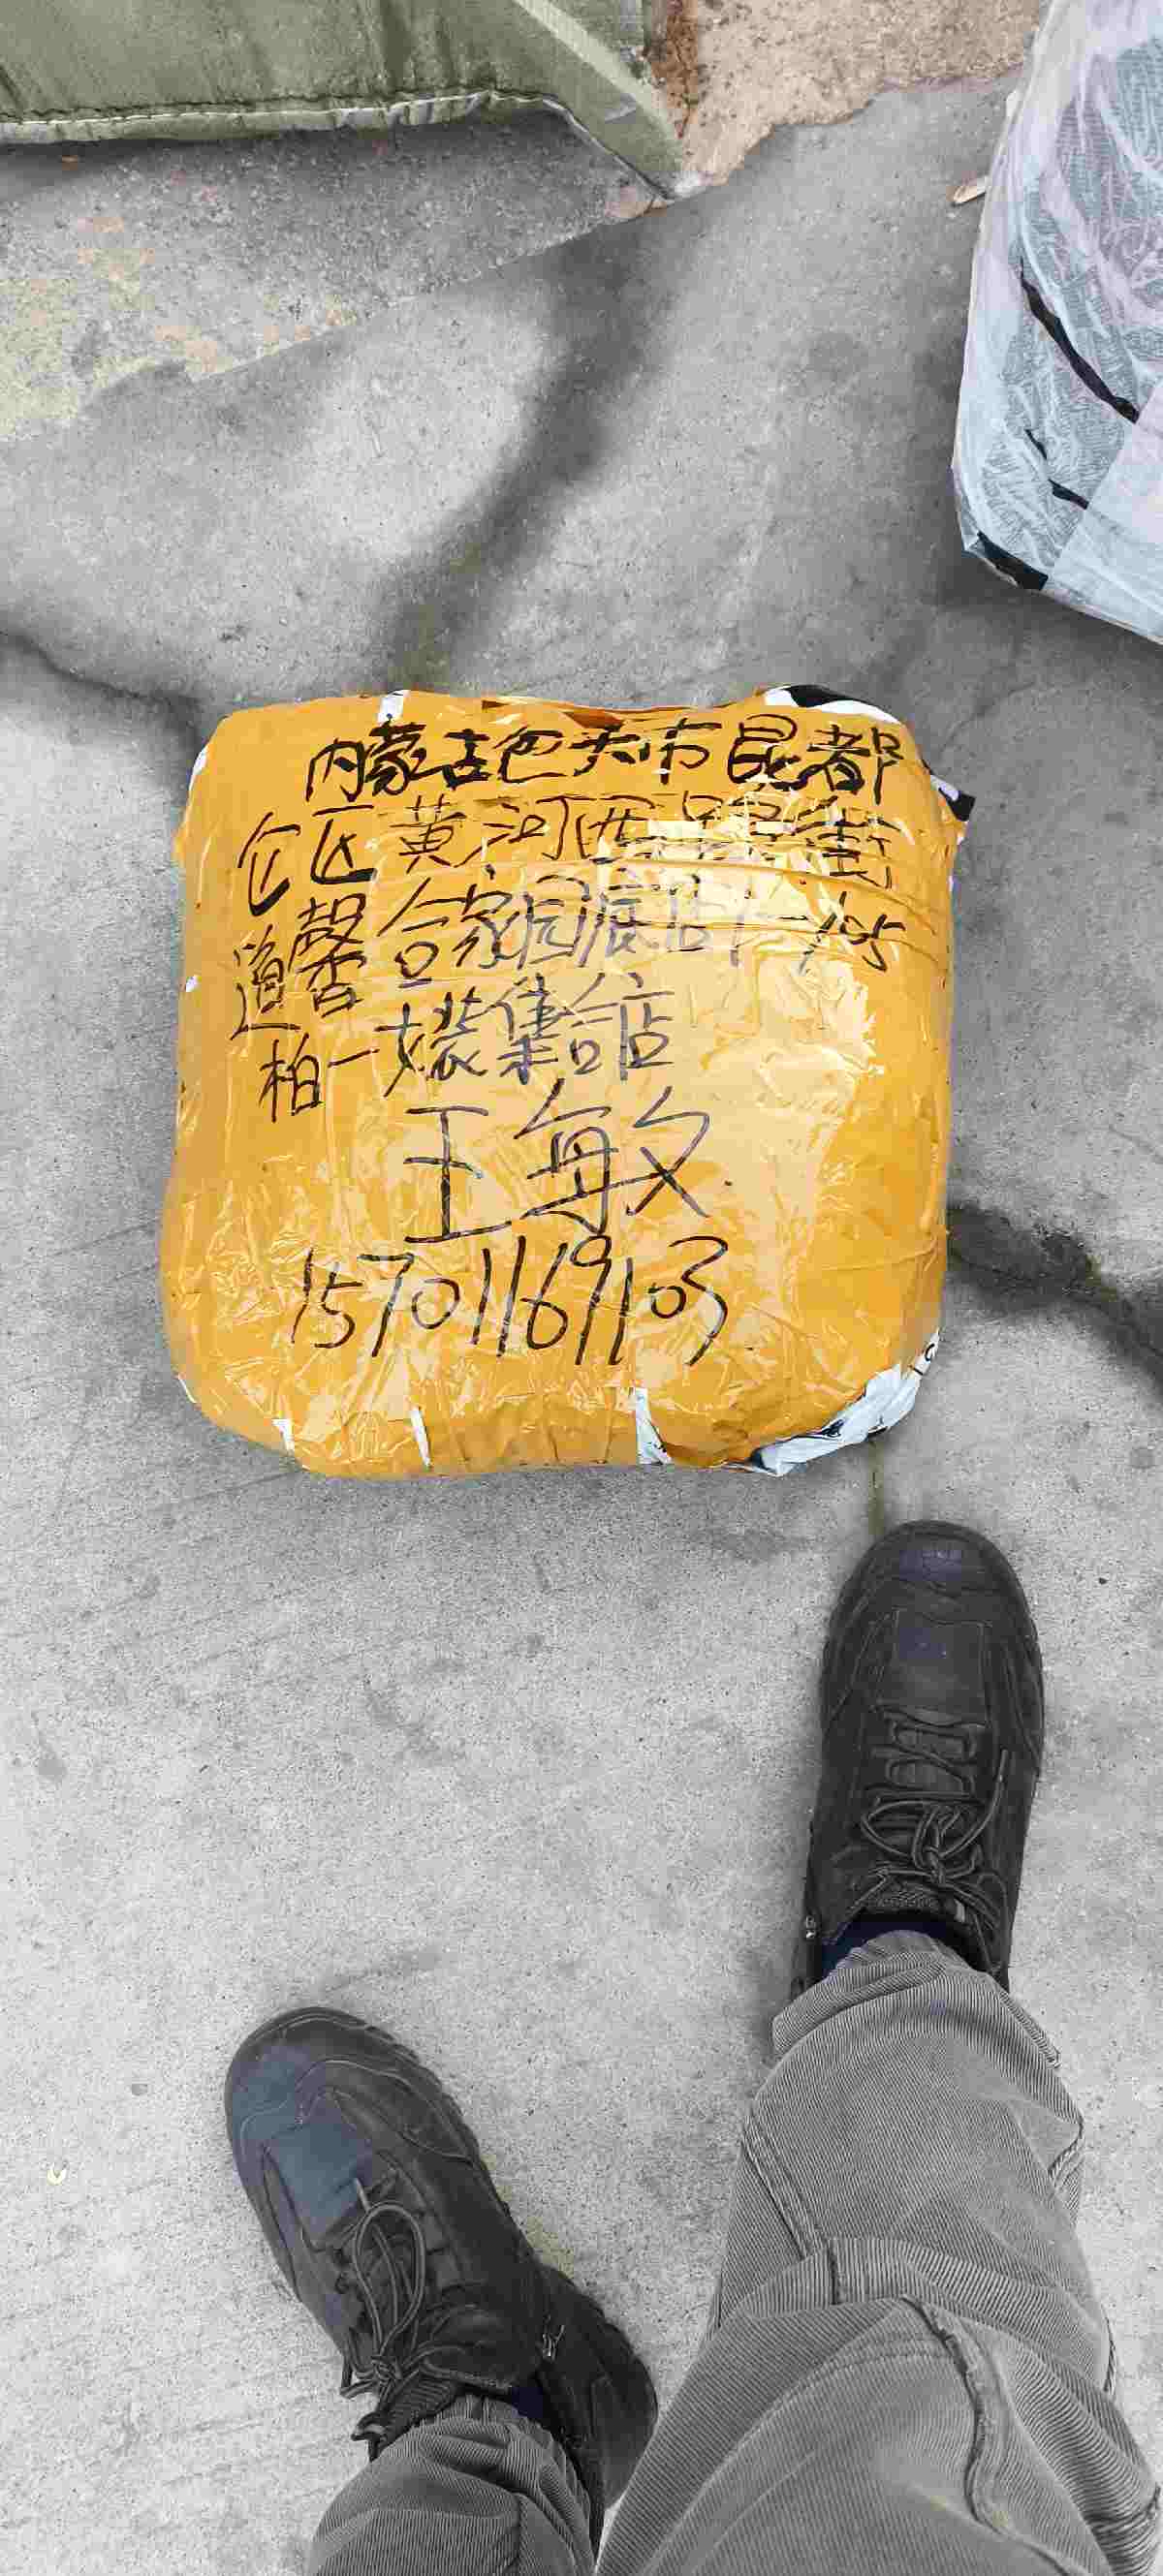 内蒙古包头市昆都
仑区黄河西路街
道馨合家园底店1-105
柏一女装集合店
王敏
15701169103